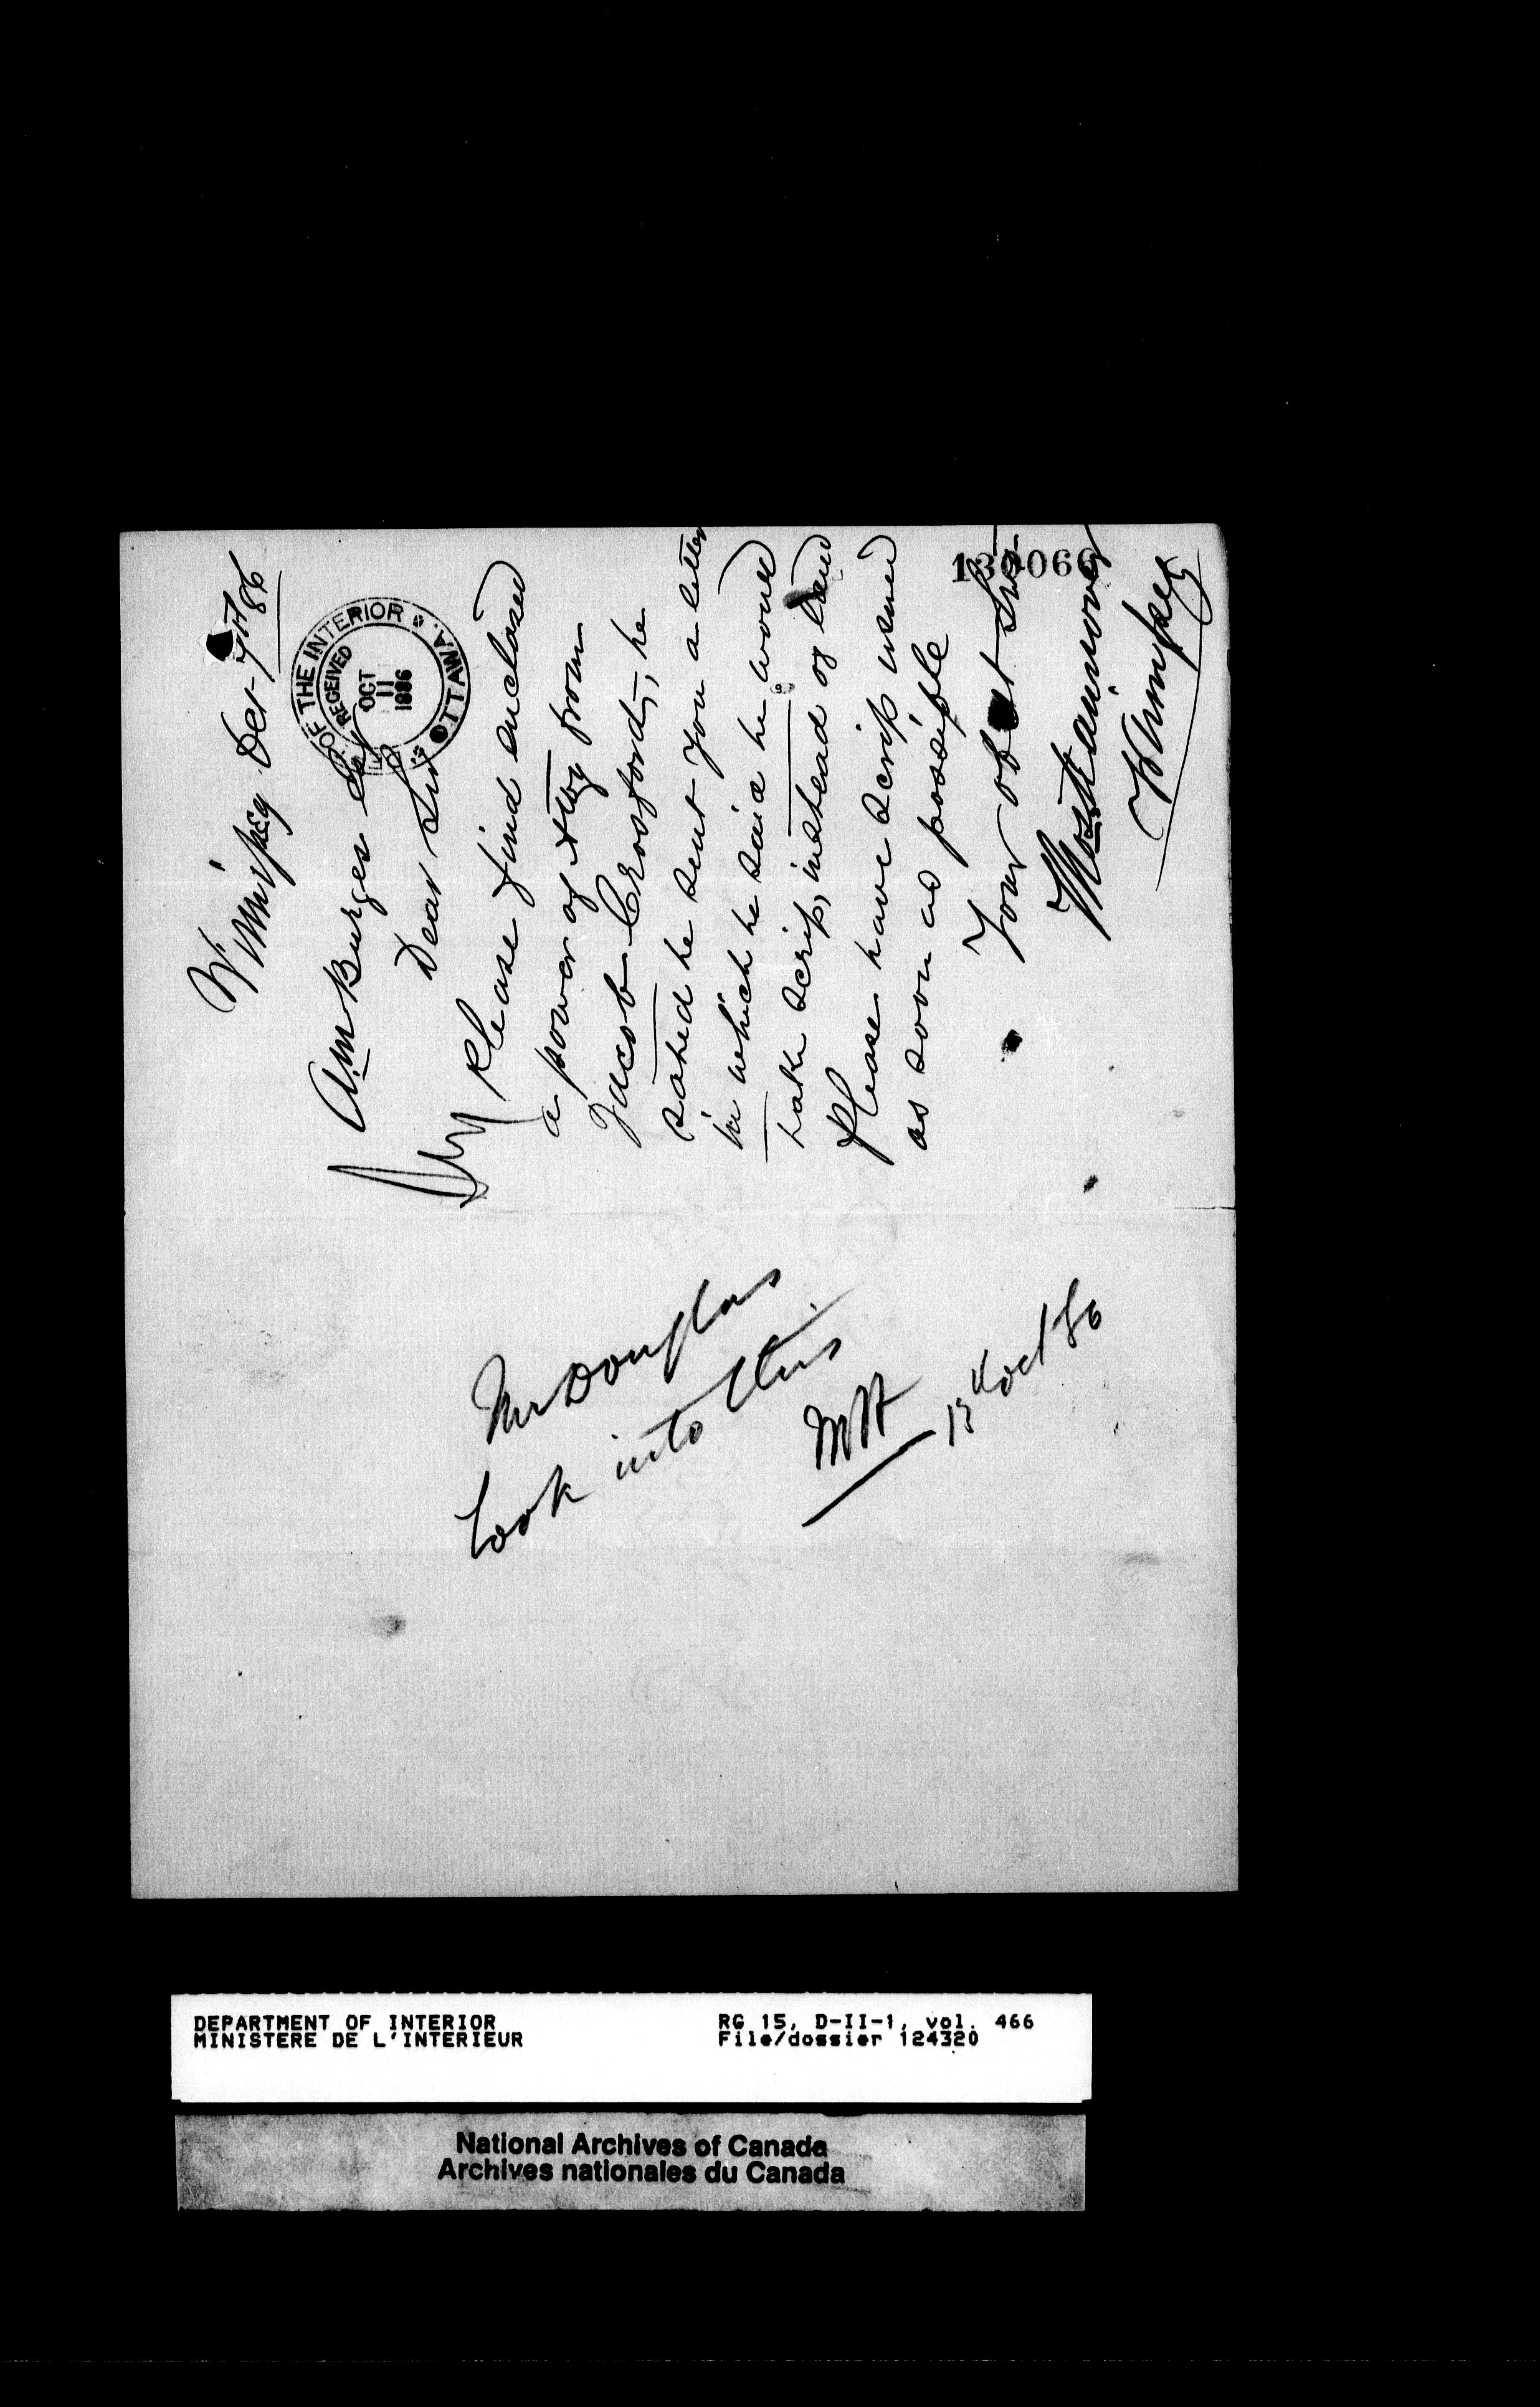 Winnipeg Oct 7th 86
A.M. Burgess Esq
DEPT. OF THE INTERIOR OTTAWA.
RECEIVED
OCT
11
1886
Dear Sir
Please find enclosed
a power of Atty from
Jacob Crossford, he
stated he sent you a letter
in which he said he would
take scrip, instead of land
Please have scrip issued
as soon as possible
Your obt Svt
Winnipeg
Mr Douglas
Look into this.
13th Oct 86
DEPARTMENT OF INTERIOR
MINISTERE DE L'INTERIEUR
RG 15, D-II-1, vol. 466
File/dossier 124320
National Archives of Canada
Archives nationales du Canada